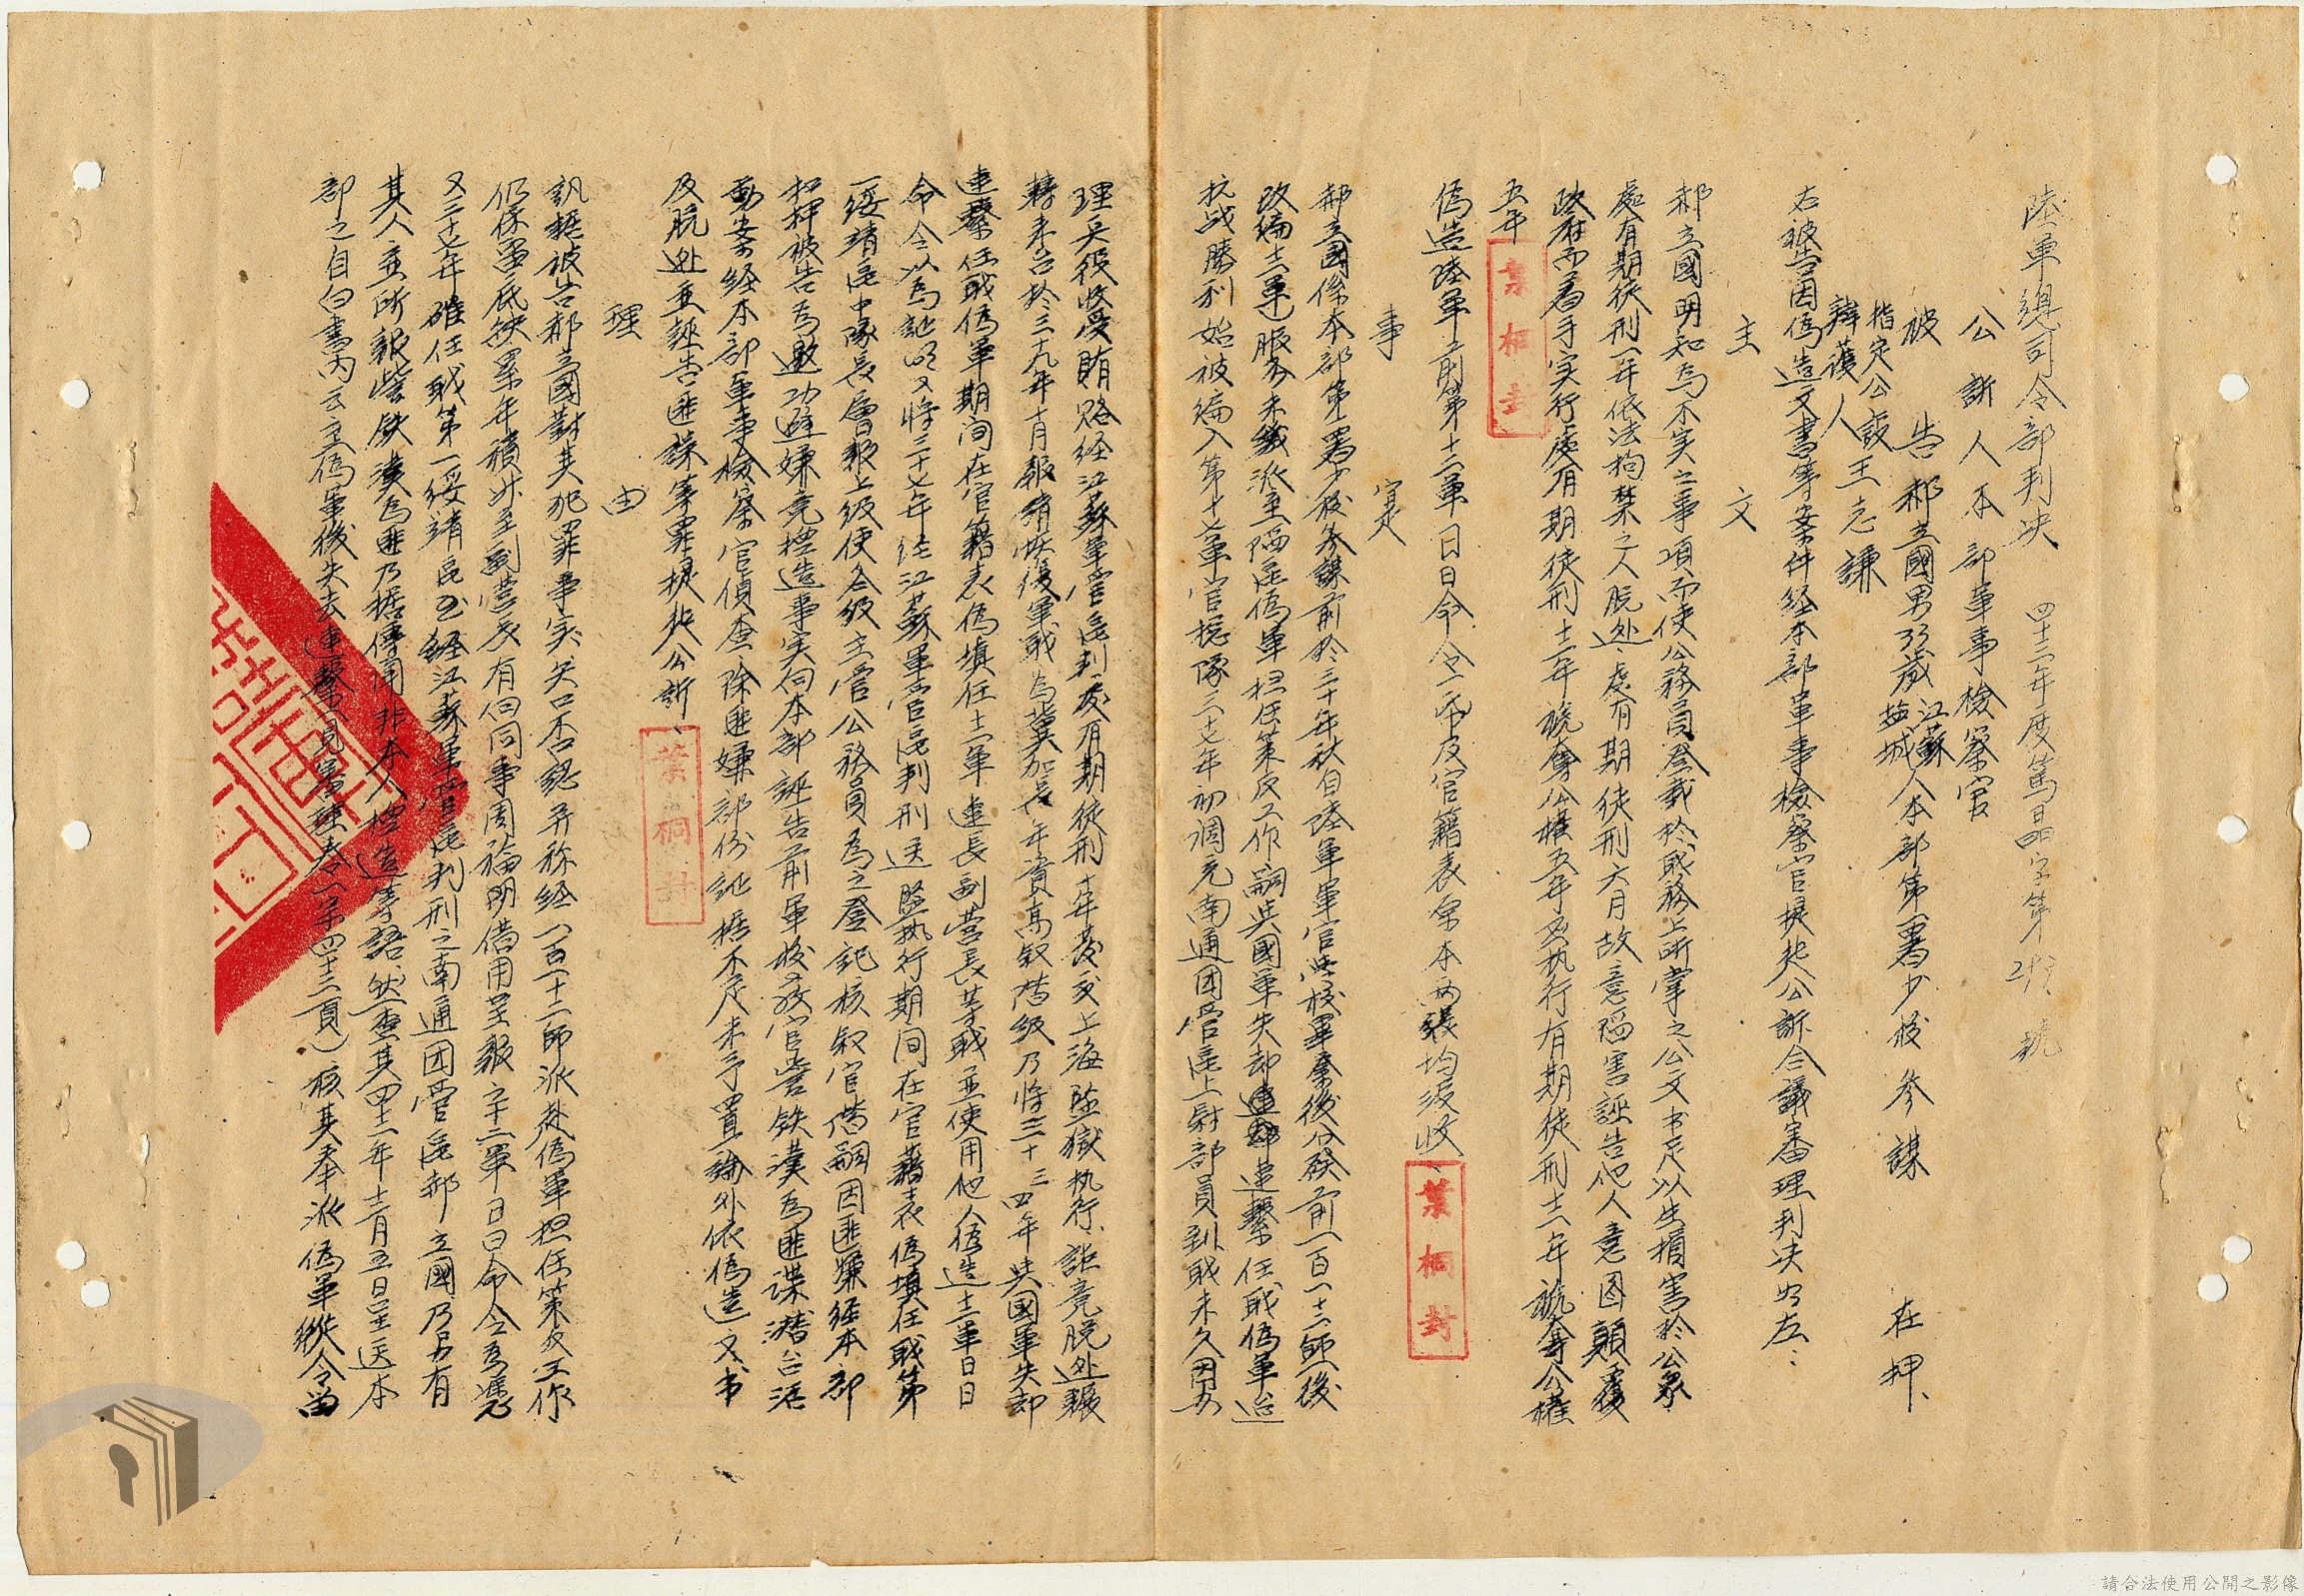 陸軍總司令部判決　四十二年度篤晶字第　號
公訴人本部軍事檢察官
被告郝立國男33歲江蘇鹽城人本部第一署少校參謀　在押、
指定公設辯護人王志謙
右被告因偽造文書等案件経本部軍事檢察官提起公訴合議審理判决如左：
主文
郝立國明知為不实之事項而使公務員登載於职務上所掌之公文书足以生損害於公衆
處有期徒刑一年依法拘禁之人脱逃、處有期徒刑六月故意禍害誣告他人意圖顛覆
政府而着手实行處有期徒刑十二年褫奪公權五年應执行有期徒刑十二年褫奪公權
五年
葉桐封
偽造陸軍前第十二軍日日命令一帋及官籍表原本兩張均沒收、
葉桐封
事实
郝立國係本部第一署少校參謀前於三十年秋自陸軍軍官學校畢業後分發前一百一十二師後
改編十二軍服务未幾派至陷區偽軍担任策反工作嗣與國軍失却連繫任职偽軍迨
抗战勝利始被編入第十七軍官總隊三七年初調充南通团管區上尉部員到职未久因办
理兵役收受賄賂経江蘇軍管區判處有期徒刑十年發交上海监獄执行、詎竟脱逃輾
轉来台於三十九年十月報請恢復軍职為冀加長年資高叙階級乃将三十三四年與國軍失却
連繫任职偽軍期间在官籍表偽填任十二軍連長副营長等职並使用他人偽造十二軍日日
命令以為証明又将三十七年経江蘇軍管區判刑送监执行期间在官籍表偽填任职第
一綏靖區中隊長層報上級使各級主管公務員為之登記核叙官階嗣因匪嫌経本部
扣押被告為邀功避嫌竟揑造事实向本部誣告前軍校教官柴铁漢為匪諜潜台活
動案経本部軍事檢察官偵查除匪嫌部份証据不足未予置論外依偽造文书
及脱逃並誣告匪諜等罪提起公訴、
葉桐封
理由
訊据被告郝立國對其犯罪事实矢口否認弁称経一百一十二師派赴偽軍担任策反工作
仍保留底缺累年積升至副营長有同事周福明借用呈報之十二軍日日命令為凭
又三十七年確任职第一綏靖區至経江蘇軍管區判刑之南通团管區郝立國乃另有
其人並所報柴铁漢為匪乃據傳闻非本人揑造等語然查其四十一年十二月五日呈送本
部之自白書内云至偽軍後失去連繫（見卷建春一字四十三頁）核其奉派偽軍縱令留
請合法使用公開之影像